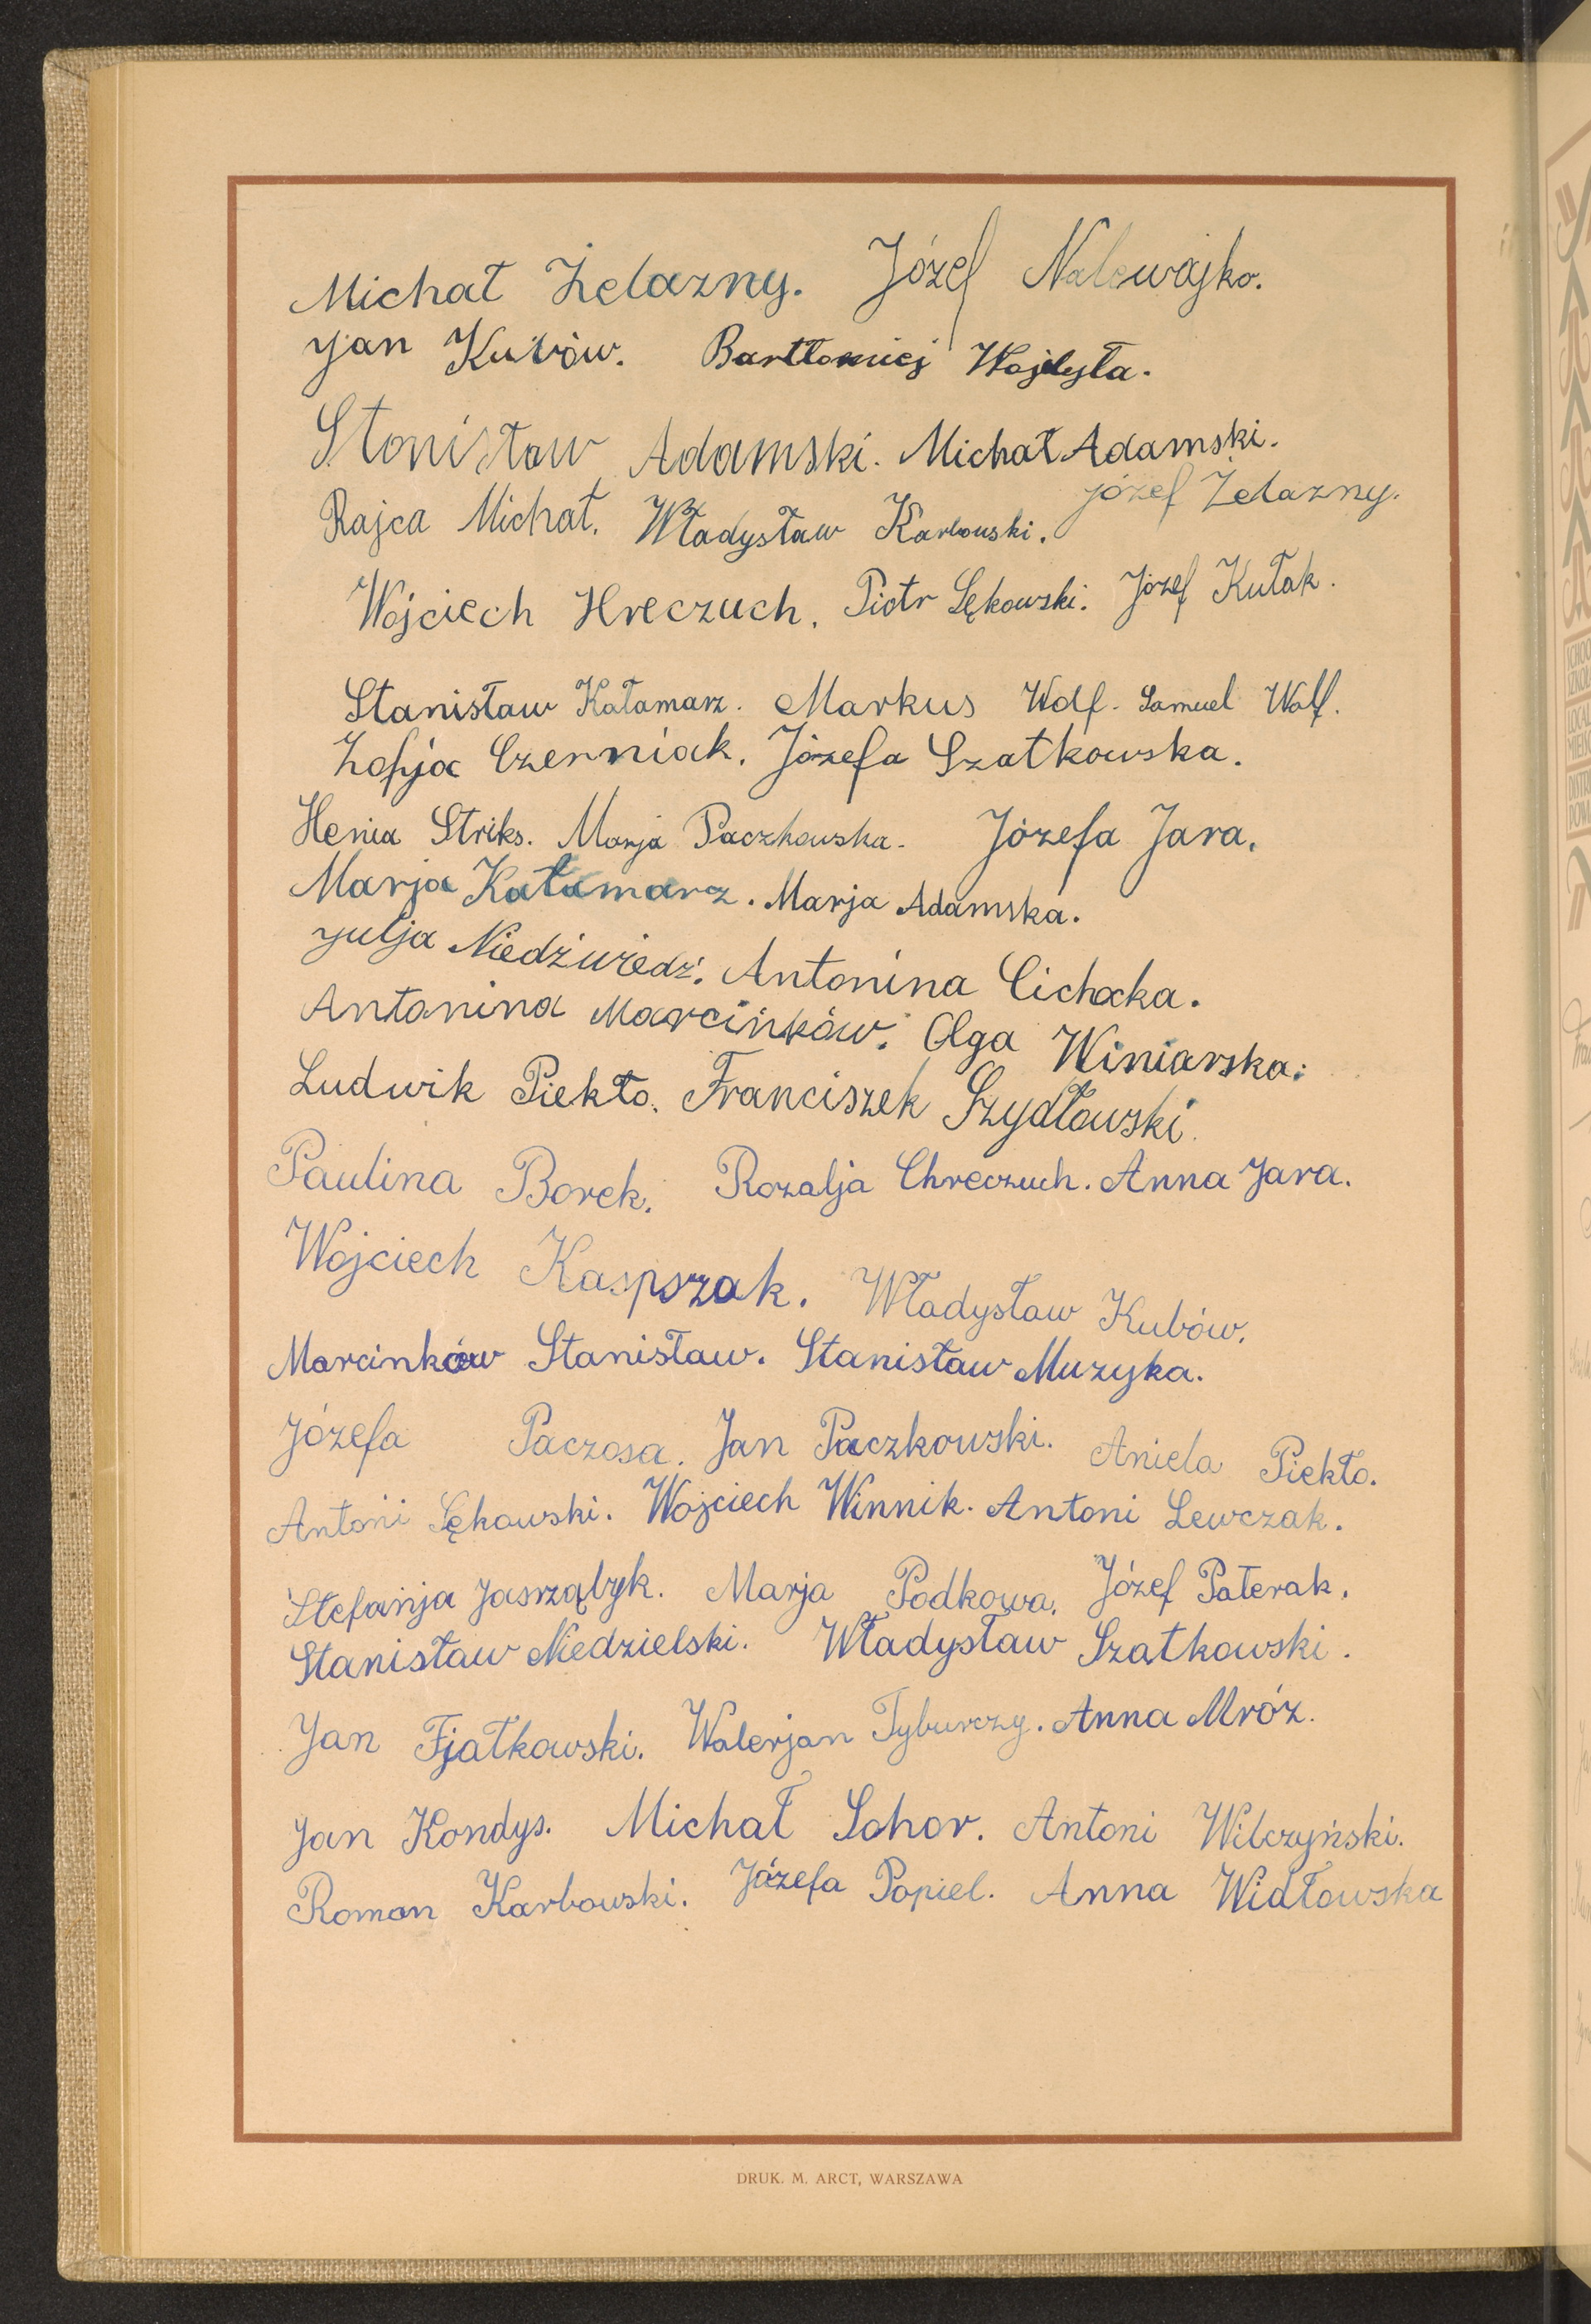 Michał Żelazny. Józef Nalewajko.
Jan Kubów. Bartłomiej Wojdyła.
Stanisław Adamski. Michał Adamski.
Józef Żelazny.
Rajca Michał. Władysław Karbowski.
Wojciech Hreczuch. Piotr Sękowski. Józef Kułak.
Stanisław Kałamarz. Markus Wolf. Samuel Wolf.
Zofja Czerniak. Józefa Szatkowska.
Henia Striks. Marja Paczkowska. Józefa Jara.
Marja Kałamarz. Marja Adamska.
Julja Niedźwiedź. Antonina Cichocka.
Antonina Marcinków. Olga Winiarska.
Ludwik Piekło. Franciszek Szydłowski.
Paulina Borek. Rozalja Chreczuch. Anna Jara.
Wojciech Kaspszak. Władysław Kubów.
Marcinków Stanisław. Stanisław Muzyka.
Józefa Paczosa. Jan Paczkowski. Aniela Piekło.
Antoni Sękowski. Wojciech Winnik. Antoni Lewczak.
Stefanja Jasrząbyk. Marja Podkowa. Józef Paterak.
Stanisław Niedzielski. Władysław Szatkowski.
Jan Fjałkowski. Walerjan Tyburczy. Anna Mróz.
Jan Kondys. Michał Sohor. Antoni Wilczyński.
Roman Karbowski. Józefa Popiel. Anna Widłowska
DRUK. M. ARCT, WARSZAWA